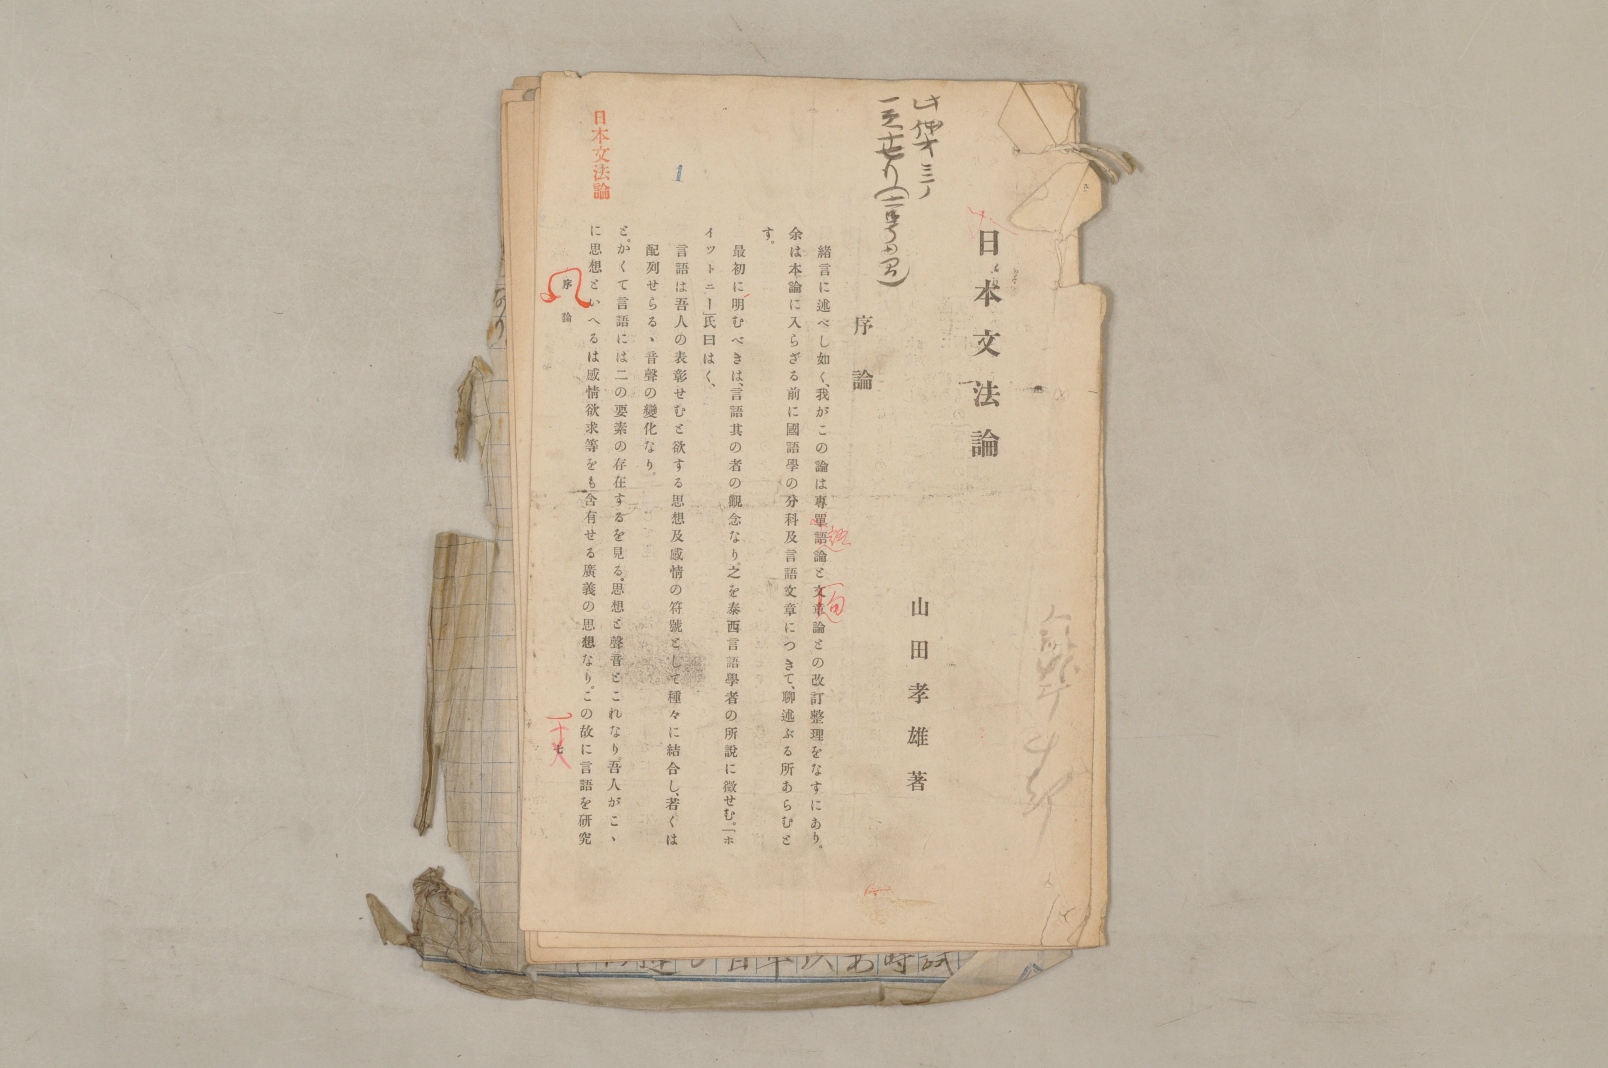 日本文法論
山田孝雄著
序論
緒言に述べし如く、我がこの論は專單語論と文章論との改訂整理をなすにあり。
余は本論に入らざる前に國語學の分科及言語文章につきて、聊述ぶる所あらむと
す。
最初に明むべきは、言語其の者の觀念なり。之を泰西言語學者の所說に徵せむ。「ホ
イットニー」氏曰はく、
言語は吾人の表彰せむと欲する思想及感情の符號として種々に結合し、若くは
配列せらるゝ音聲の變化なり。
と。かくて言語には二の要素の存在するを見る。思想と聲音とこれなり。吾人がこゝ
に思想といへるは感情欲求等をも含有せる廣義の思想なり。この故に言語を研究
序論
七
日本文法論
1